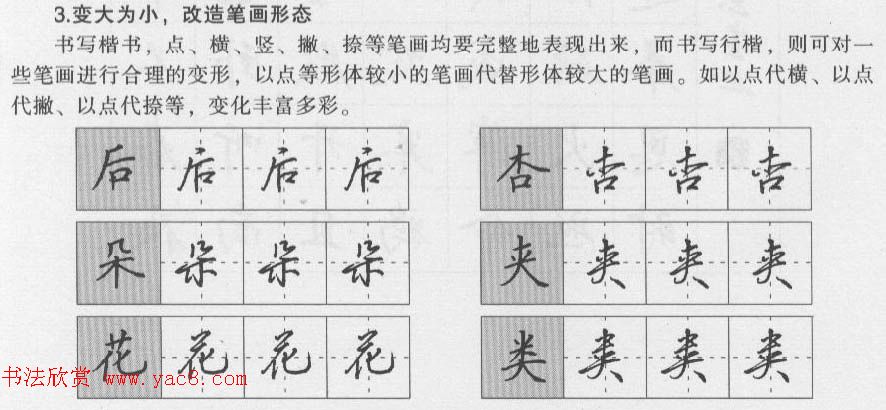 3.变大为小，改造笔画形态
书写楷书，点、横、竖、撇、捺等笔画均要完整地表现出来，而书写行楷，则可对一
些笔画进行合理的变形，以点等形体较小的笔画代替形体较大的笔画。如以点代横、以点
代撇、以点代捺等，变化丰富多彩。
后 后 后 后 杏 杏 杏 杏
朵 朵 朵 朵 夹 夹 夹 夹
花 花 花 花 类 类 类 类
书法欣赏 www.yac8.com